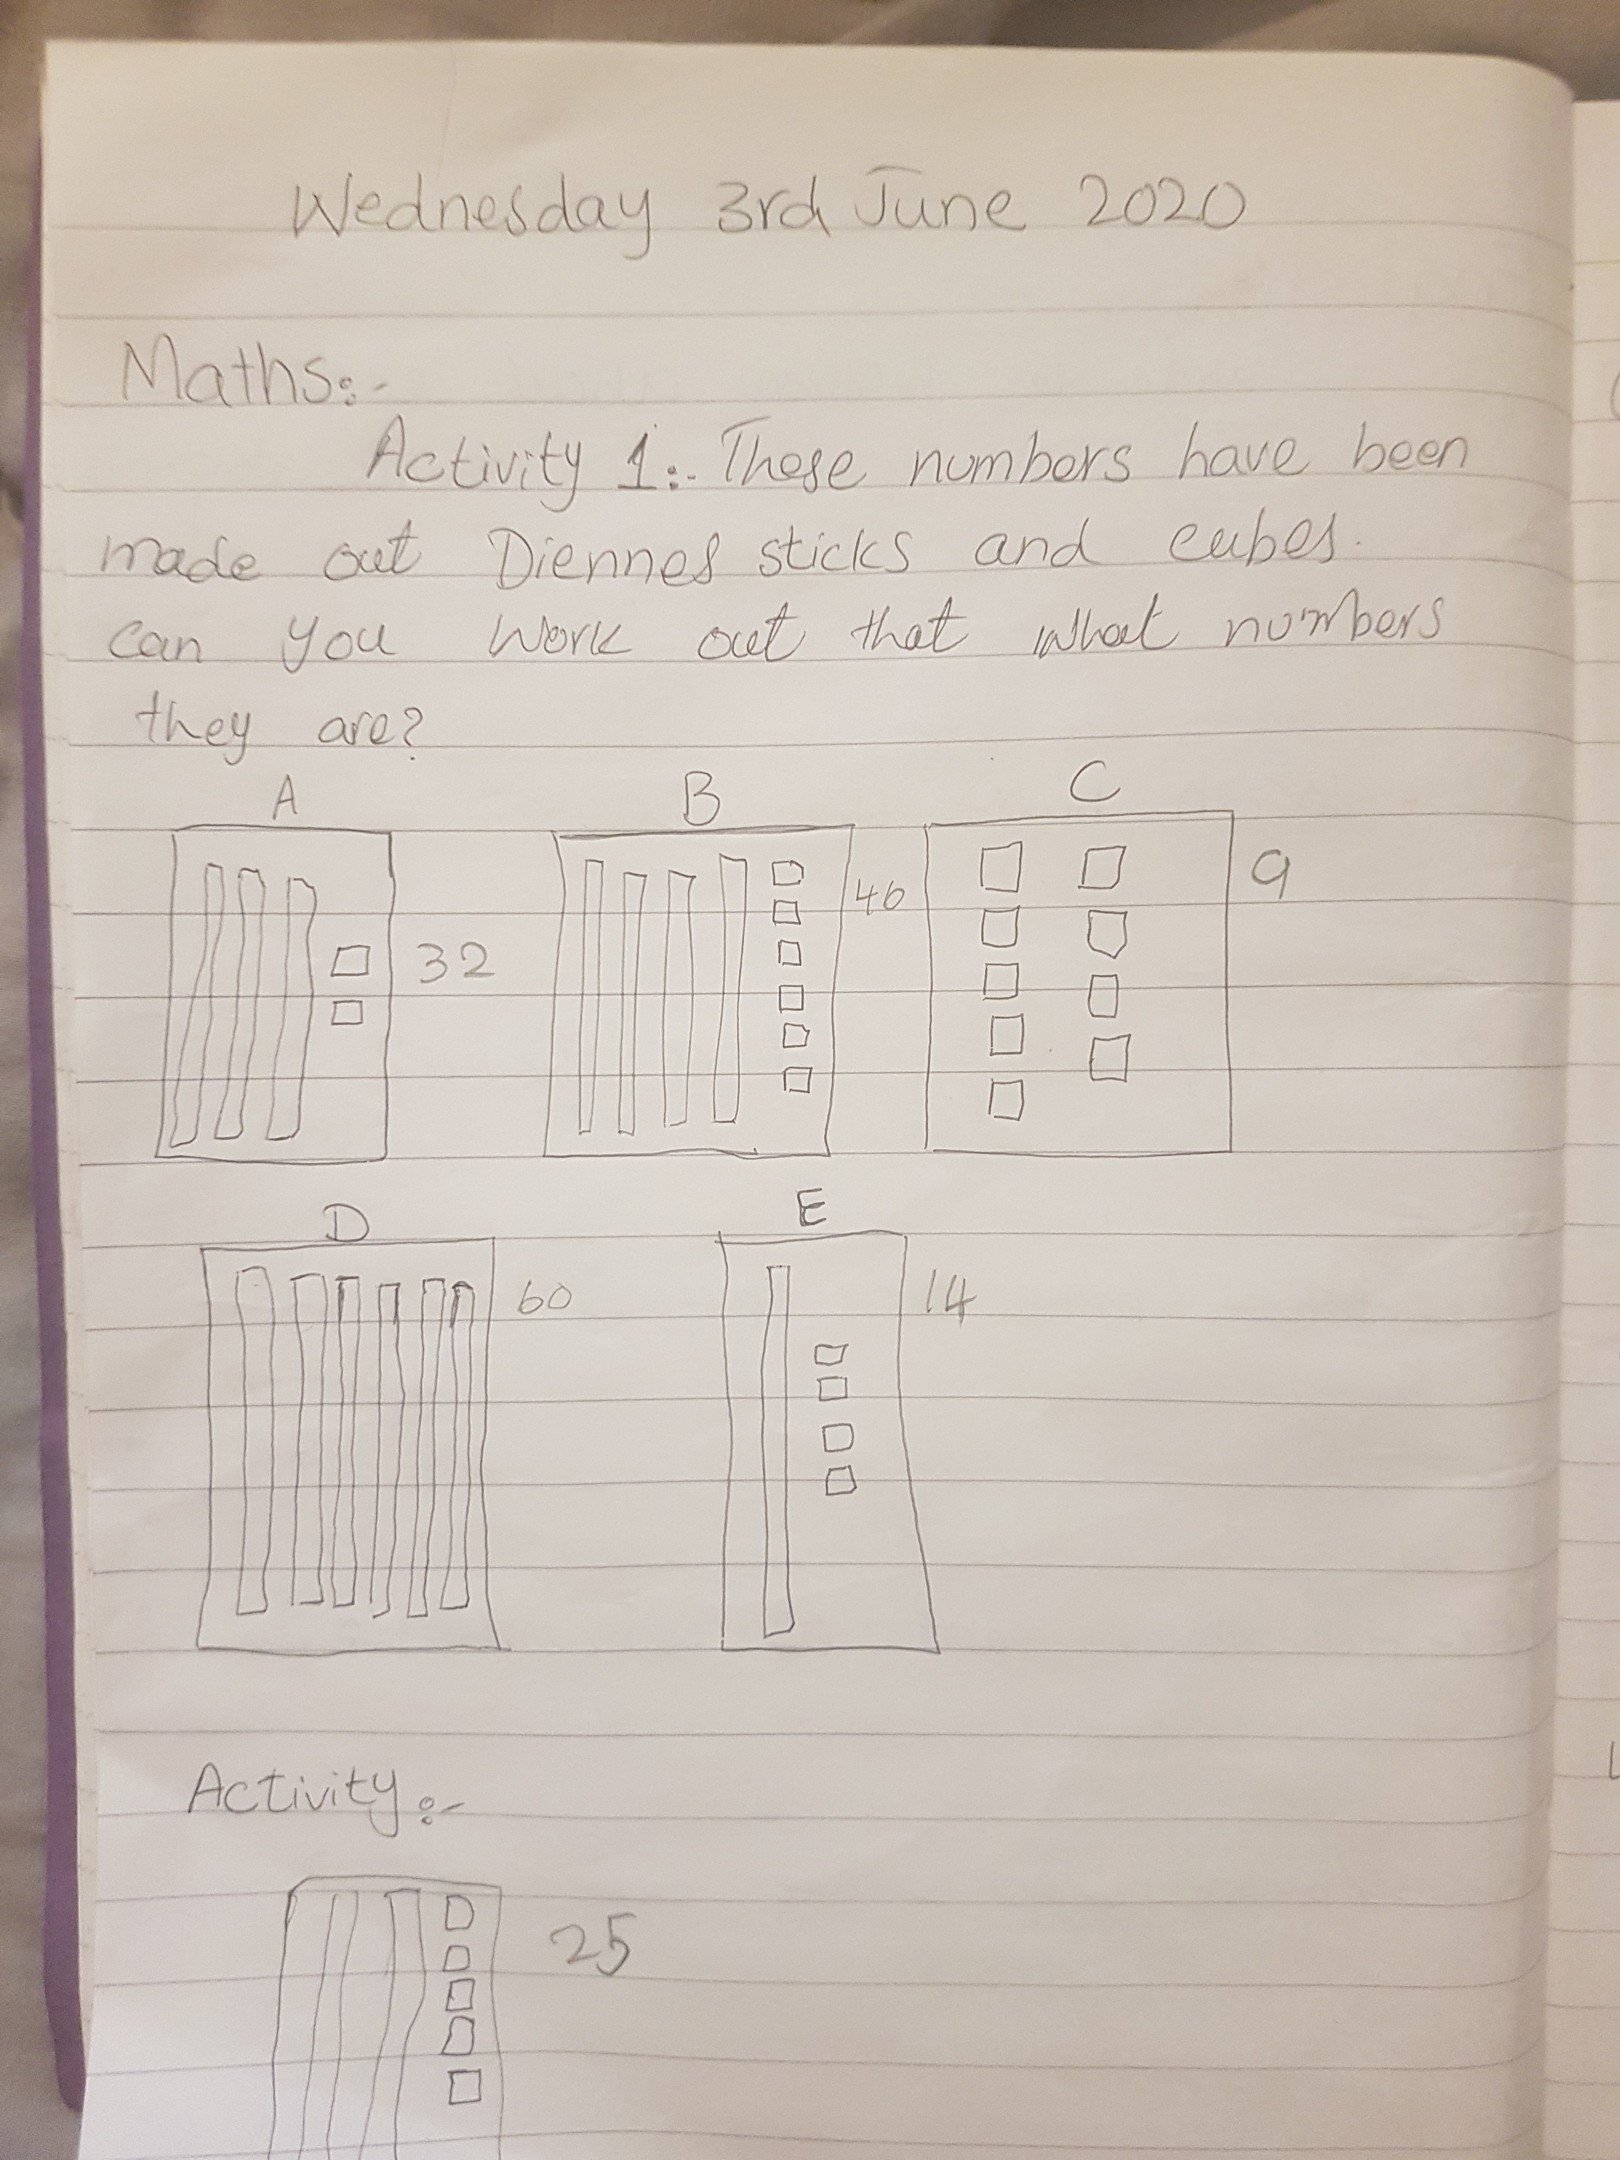 Wednesday 3rd June 2020
Maths:-
Activity 1:- These numbers have been
made out Diennes sticks and cubes.
can you work out that what numbers
they are?
A B C
32 46 9
D E
60 14
Activity:-
25